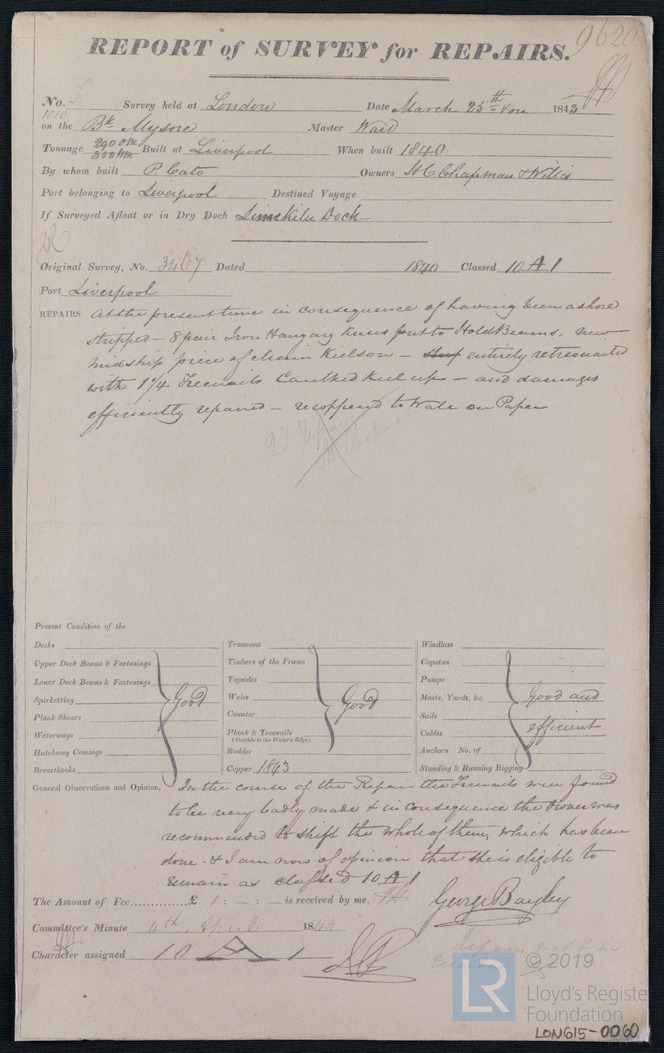 9620
REPORT of SURVEY for REPAIRS.
No. Survey held at London Date March 25th 1843
1010
on the Bk Mysore Master Ward
Tonnage 290 OM 300 NM Built at Liverpool When built 1840
By whom built P. Cato Owners H C Chapman & Willis
Port belonging to Liverpool Destined Voyage
If Surveyed Afloat or in Dry Dock Limekiln Dock
Original Survey, No. 3467 Dated 1840 Classed 10 A 1
Port Liverpool
REPAIRS At the present time in consequence of having been ashore
Stripped – 8 pair Iron Hanging knees put to Hold Beams, new
midship piece of Keelson – entirely retreenailed
with 1 1/4 Treenails Caulked keel up – and damages
efficiently repaired – recoppered to Wale on Paper
Present Condition of the
Decks Transoms Windlass
Upper Deck Beams & Fastenings Timbers of the Frame Capstan
Lower Deck Beams & Fastenings Topsides Pumps
Spirketting Good Wales Good Masts, Yards, &c. Good and
Plank Shears Counter Sails
Waterways Plank & Treenails Cables efficient
(Outside to the Water's Edge)
Hatchway Comings Rudder Anchors No. of
Breasthooks Copper 1843 Standing & Running Rigging
General Observations and Opinion, In the course of the Repair the Treenails were found
to be very badly made & in consequence the Owner was
recommended to shift the whole of them, which has been
done – & I am now of opinion that she is eligible to
remain as classed 10 A 1
The Amount of Fee............£ 1 : – : is received by me, George Bayley
Committee's Minute 4th April 1843
Character assigned 10 A 1
LR © 2019
Lloyd's Register
Foundation
LON615-0060